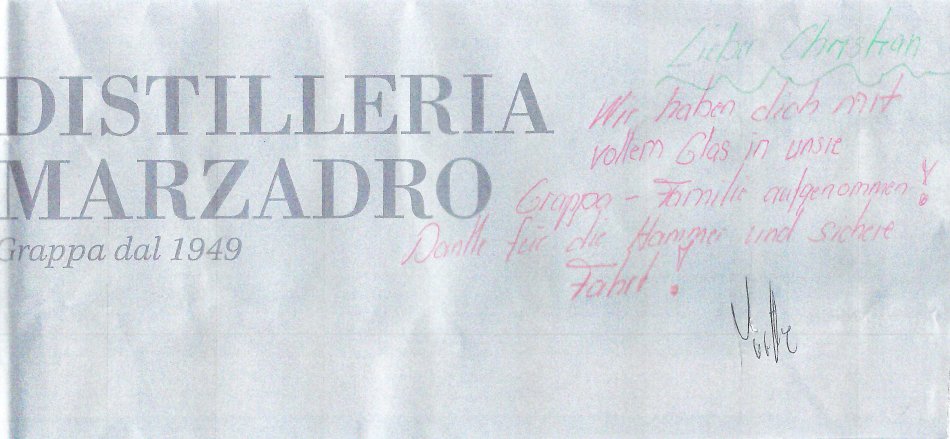 DISTILLERIA
MARZADRO
Grappa dal 1949
Lieber Christian
Wir haben dich mit
vollem Glas in unsre
Grappa - Familie aufgenommen!
Danke für die Hammer und sichere
Fahrt!